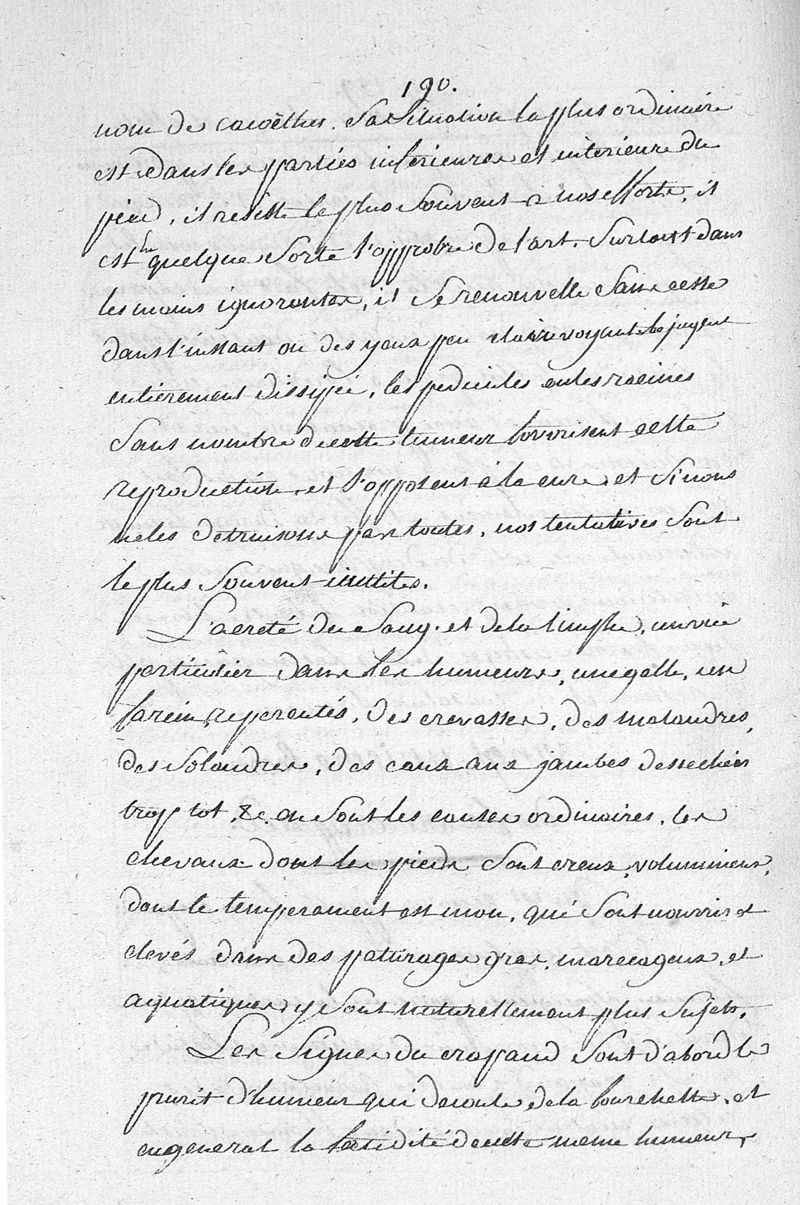 190.
nom de cacoëthes. Sa situation la plus ordinaire
est dans les parties inferieures et interieure du
pied, il resiste le plus souvent a nos efforts, il
est en quelque sorte l'opprobre de l'art. Surtout dans
les moins ignorantes, il se renouvelle sans cesse
dans l'instant ou des yeux peu clairvoyants le jugent
entierement dissipé, les pedicules ou les racines
sans nombre de cette tumeur favorisent cette
reproduction, et s'opposent à la cure, et si nous
ne les detruisons par toutes, nos tentatives sont
le plus souvent inutiles.
L'acreté du sang, et de la limphe, un vice
particulier dans les humeurs, une galle, un
farcin repercutés, des crevasses, des malandres,
des solandres, des eaux aux jambes dessechées
trop tot, &c. en sont les causes ordinaires, les
chevaux dont les pieds sont creux, volumineux,
dont le temperament est mou, qui sont nourris et
elevés dans des paturages gras, marecageux, et
aquatiques y sont naturellement plus sujets.
Les signes du crapaud sont d'abord le
prurit d'humeur qui decoule de la fourchette, et
en general la fetidité de cette meme humeur,